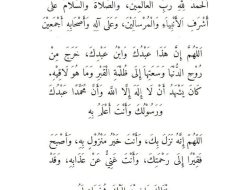 الحمد لله رب العالمين، والصلاة والسلام على
أَشْرَفِ الْأَنْبِيَاءِ وَالْمُرْسَلِيْنَ، وَعَلَى آلِهِ وَأَصْحَابِهِ أَجْمَعِيْنَ
اَللّٰهُمَّ إِنَّ هَذَا عَبْدُكَ وَابْنُ عَبْدِكَ، خَرَجَ مِنْ
رُوْحِ الدُّنْيَا وَسَعَتِهَا إِلَى ظُلْمَةِ الْقَبْرِ وَمَا هُوَ لَاقِيْهِ.
كَانَ يَشْهَدُ أَنْ لَا إِلَهَ إِلَّا اللّٰهُ وَأَنَّ مُحَمَّدًا عَبْدُكَ
وَرَسُوْلُكَ وَأَنْتَ أَعْلَمُ بِهِ
اَللّٰهُمَّ إِنَّهُ نَزَلَ بِكَ، وَأَنْتَ خَيْرُ مَنْزُوْلٍ بِهِ، وَأَصْبَحَ
فَقِيْرًا إِلَى رَحْمَتِكَ، وَأَنْتَ غَنِيٌّ عَنْ عَذَابِهِ، وَقَدْ